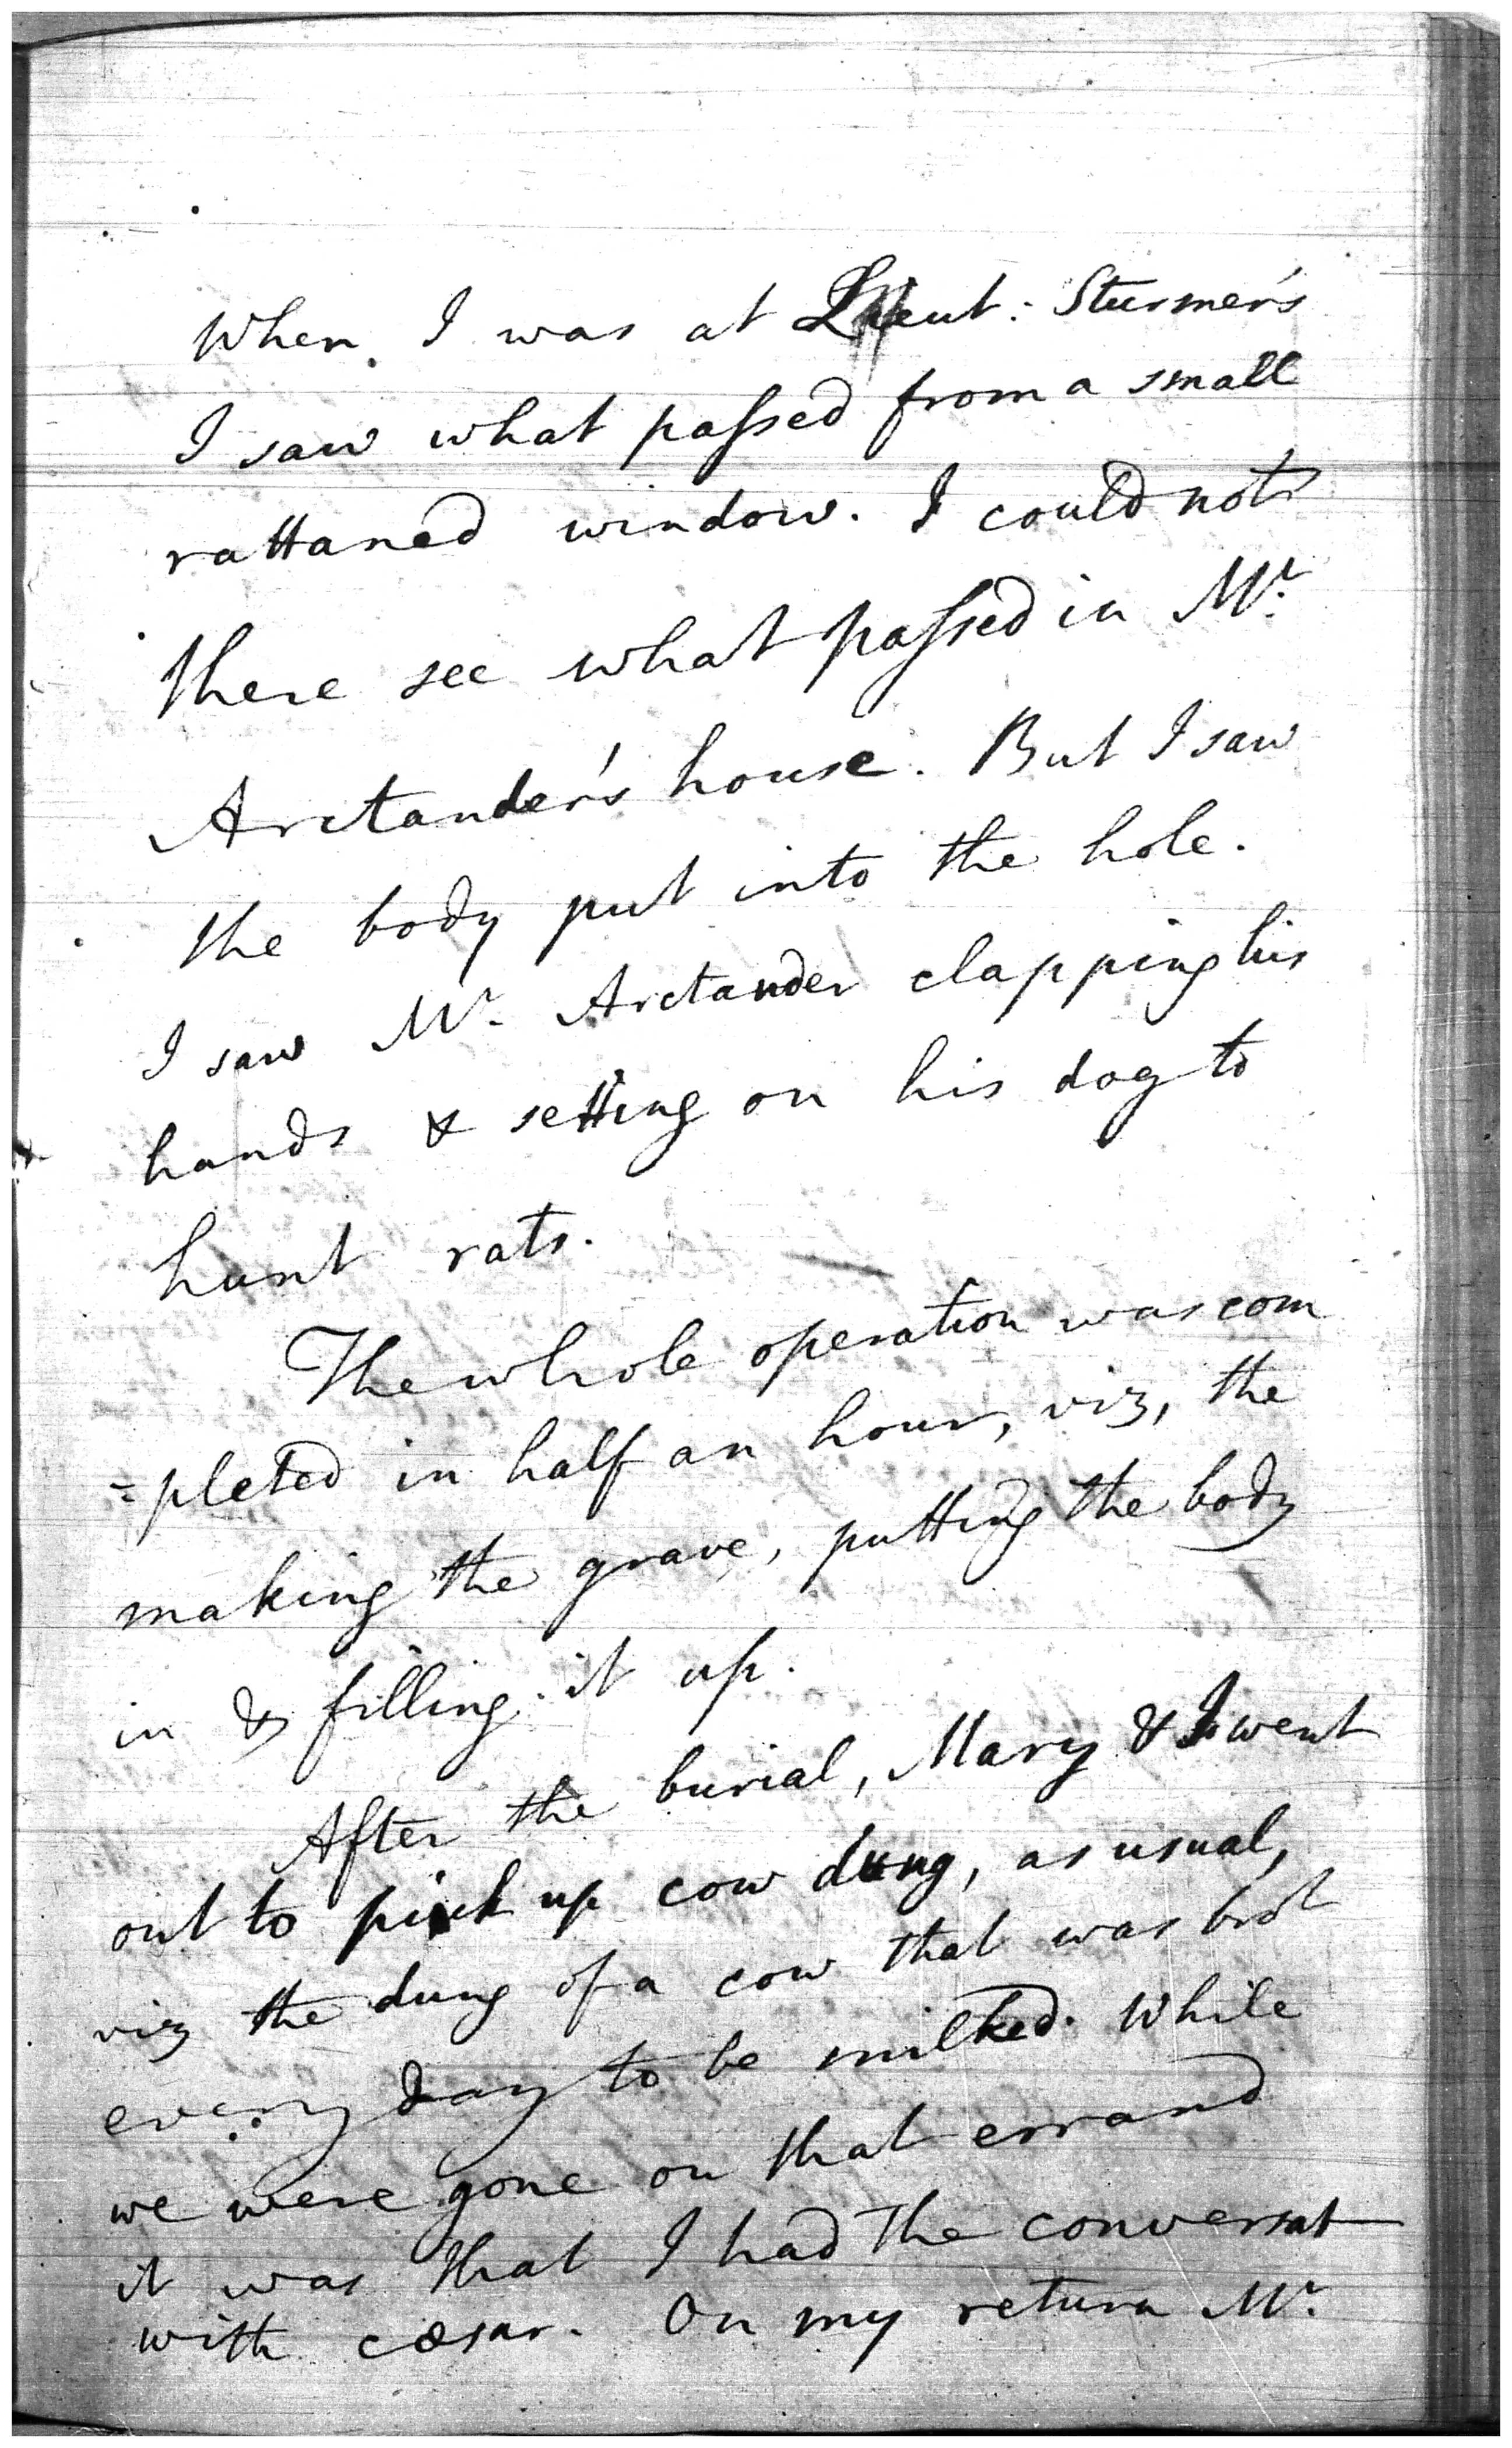 When I was at Lieut: Stürmer's
I saw what passed from a small
rattaned window. I could not
there see what passed in Mr.
Arctander's house. But I saw
the body put into the hole.
I saw Mr. Arctander clapping his
hands & setting on his dog to
hunt rats.
The whole operation was com
=pleted in half an hour, viz, the
making the grave, putting the body
in & filling it up.
After the burial, Mary & I went
out to pick up cow dung, as usual,
viz the dung of a cow that was brot
every day to be milked. While
we were gone on that errand
it was that I had the conversat
with cæsar. On my return Mr.